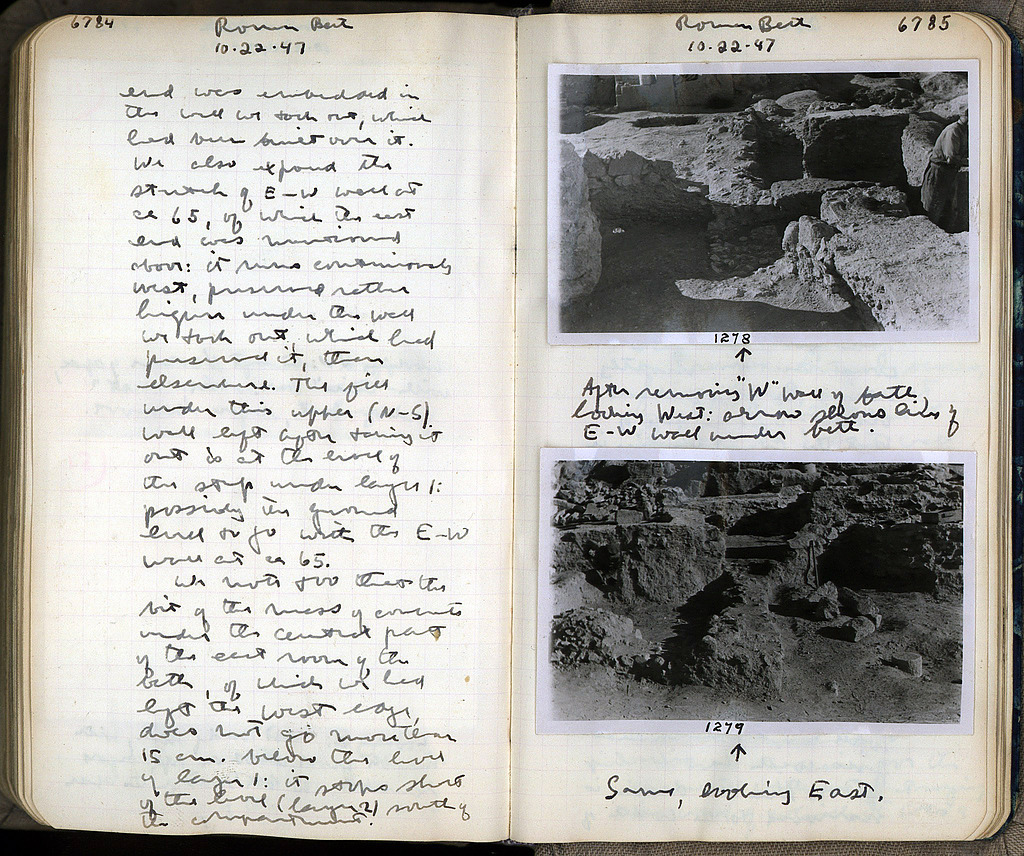 6784
Roman Bath
10.22.47
end was embedded in
the wall we took out, which
had been built over it.
We also exposed the
stretch of E-W wall at
ca 65, of which the east
end was mentioned
above: it runs continuously
west, preserved rather
higher under the wall
we took out, which had
preserved it, than
elsewhere. The fill
under this upper (N-S)
wall left after taking it
out is at the level of
the step under layer 1:
possibly the ground
level to go with the E-W
wall at ca 65.
We note too that the
bit of the mass of concrete
under the central part
of the east room of the
bath, of which we had
left the west edge,
does not go more than
15 cm. below the level
of layer 1: it stops short
of the level (layer 2) south of
the compartment.
Roman Bath
6785
10.22.47
1278
↑
After removing "W" wall of bath,
looking West: arrow shows line of
E-W wall under bath.
1279
↑
Same, looking East.